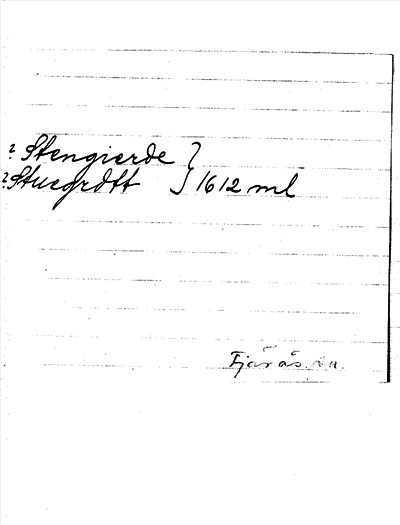 ? Stengierde } 1612 ml
? Stuegrdtt
Fjärås sn.